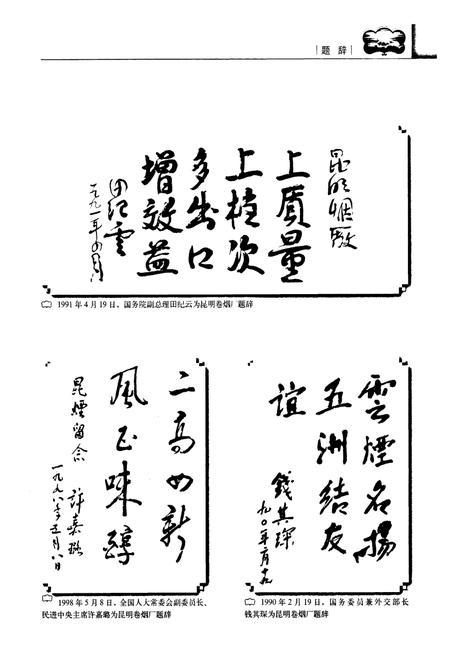 题辞
昆明烟厂
上质量
上档次
多出口
增效益
田纪云
一九九一年四月
1991年4月19日，国务院副总理田纪云为昆明卷烟厂题辞
二高四新
风正味醇
昆煙留念
许嘉璐
一九九八年五月八日
1998年5月8日，全国人大常委会副委员长、
民进中央主席许嘉璐为昆明卷烟厂题辞
雲煙名揚
五洲结友
谊
錢其琛
1990年2月19日，国务委员兼外交部长
钱其琛为昆明卷烟厂题辞